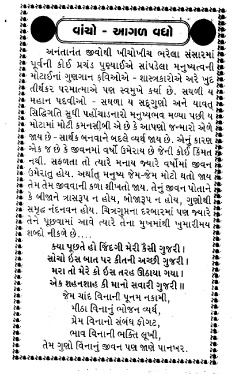 વાંચો - આગળ વધો
અનંતાનંત જીવોથી ખીચોખીચ ભરેલા સંસારમાં
પૂર્વની કોઈ પ્રચંડ પુણ્યાઈએ સાંપડેલા મનુષ્યત્વની
મોટાઈનાં ગુણગાન કવિઓએ - શાસ્ત્રકારોએ અરે ખુદ
તીર્થંકર પરમાત્માએ પણ સ્વમુખે કર્યા છે. સઘળી ય
મહાન પદવીઓ - સઘળા ય સદ્ગુણો અને યાવત્
સિદ્ધિગતિ સુધી પહોંચાડનારો મનુષ્યભવ મળ્યા પછી ય
મોટામાં મોટી કમનસીબી એ છે કે આપણો જન્મારો એળે
જાય છે - સાર્થક બનવાને બદલે વ્યર્થ જાય છે. એનું કારણ
એક જ છે કે જીવનમાં વર્ષો ઉમેરાય છે જેની કોઈ કિંમત
નથી. સફળતા તો ત્યારે મનાય જ્યારે વર્ષોમાં જીવન
ઉમેરાતું હોય. અર્થાત્ મનુષ્ય જેમ-જેમ મોટો થતો જાય
તેમ તેમ જીવવાની કળા શીખતો જાય. તેનું જીવન પોતાને
કે બીજાને ત્રાસરૂપ ન હોય, બોજારૂપ ન હોય, ગુણોથી
સમૃદ્ધ નંદનવન હોય. ચિત્રગુપ્તના દરબારમાં પણ જ્યારે
તેને પૂછવામાં આવે ત્યારે તેના મુખમાંથી ખુમારીમય
શબ્દો નીકળે છે....
ક્યા પૂછતે હો જિંદગી મેરી કૈસી ગુજરી !
સોચો ઇસ બાત પર કીતની અચ્છી ગુજરી !
મરા તો મેરે કો ઇસ તરહ ઊઠાયા ગયા !
એક શહનશાહ કી માનો સવારી ગુજરી !!
જેમ ચાંદ વિનાની પૂનમ નકામી,
મીઠા વિનાનું ભોજન વ્યર્થ,
પ્રેમ વિનાનો સંબંધ ફોગટ,
ભાવ વિનાની ભક્તિ લૂખી,
તેમ ગુણો વિનાનું જીવન પણ જાણે પાનખર.